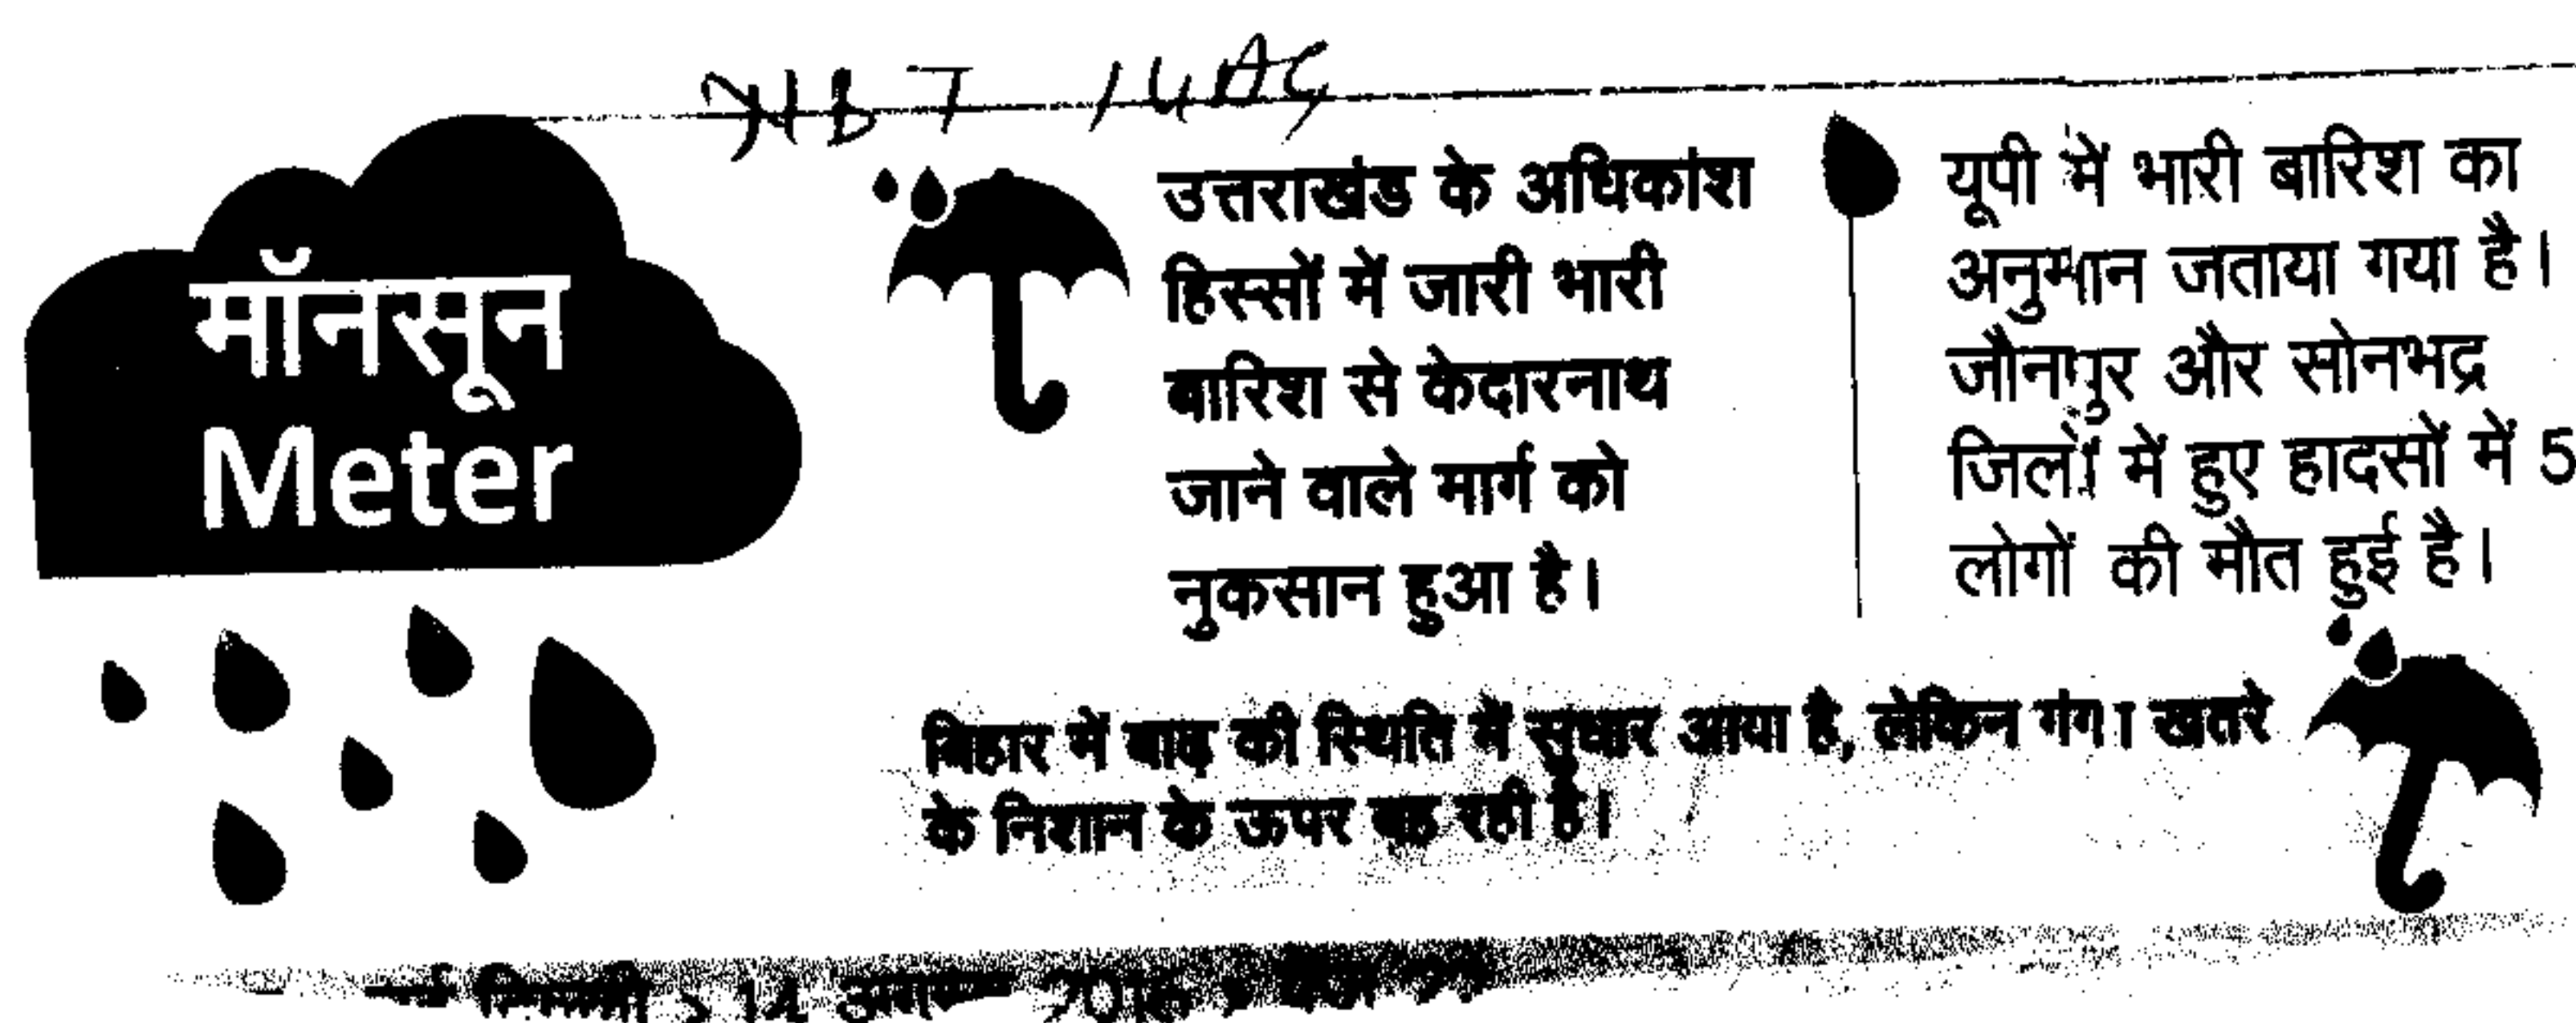 NBT 14AG
मॉनसून
Meter
उत्तराखंड के अधिकांश
हिस्सों में जारी भारी
बारिश से केदारनाथ
जाने वाले मार्ग को
नुकसान हुआ है।
यूपी में भारी बारिश का
अनुमान जताया गया है।
जौनपुर और सोनभद्र
जिलों में हुए हादसों में 5
लोगों की मौत हुई है।
बिहार में बाढ़ की स्थिति में सुधार आया है, लेकिन गंगा खतरे
के निशान के ऊपर बह रही है।
14 अगस्त 2016